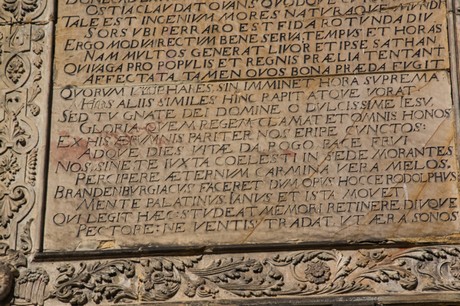 TALE EST INGENIUM MORES NATURAQUE
SORS UBI PERRARO EST FIDA ROTUNDA DIU
ERGO MODUM RECTUM BENE SERVA TEMPUS ET HORAS
NAM MULTOS GENERAT LIVOR ET IPSE SATHAN
QUI PRO POPULIS ET REGNIS PRÆLIA TENTANT
AFFECTATA TAMEN QUOS BONA PRÆDA FUGIT
QUORUM SIM IMMINET HORA SUPREMA
ALIIS SIMILES HINC RAPIT ATQUE VORAT
SED TU GNATE DEI DOMINE O DULCISSIME IESU,
GLORIA QUEM REGEM CLAMAT ET OMNIS HONOS
EX HIS ÆRUMNIS PARITER NOS ERIPE CUNCTOS:
ADQUE DIES VITÆ DA ROGO PACE FRUI
NOS SINE TE IUXTA COELESTI IN SEDE MORANTES
PERCIPERE ÆTERNUM CARMINA VERA MELOS.
BRANDENBURGIACUS FACERET DUM OPUS HOCCE RODOLPHUS
MENTE PALATINUS IANUS ET ISTA VOVET
QUI LEGIT HÆC: STUDEAT MEMORI RETINERE
PECTORE: NE VENTIS TRADAT, UT ÆRA SONOS